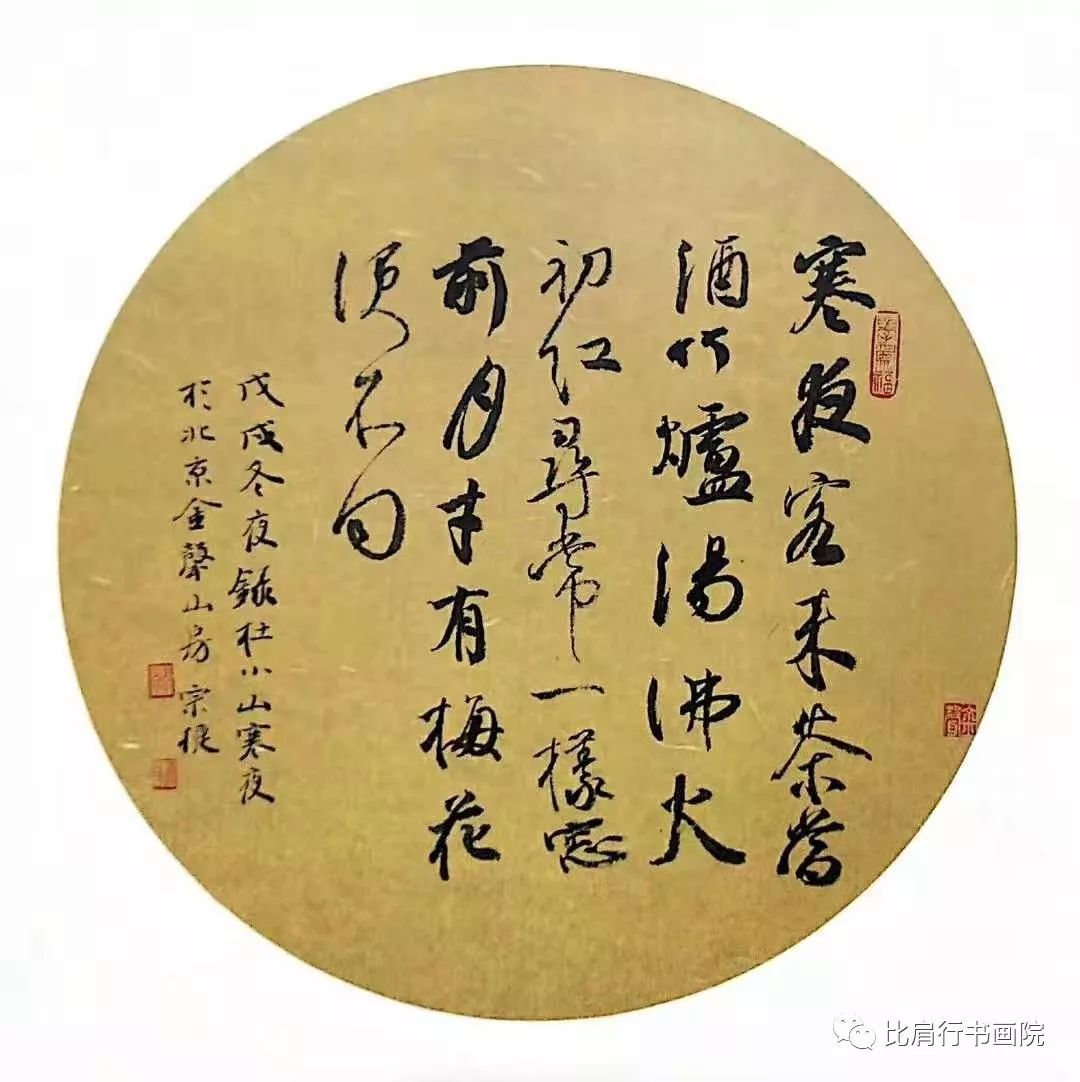 寒夜客来茶當
酒竹爐湯沸火
初红尋常一樣窓
前月才有梅花
便不同
戊戌冬夜錄杜小山寒夜
於北京金聲山房宗
比肩行书画院